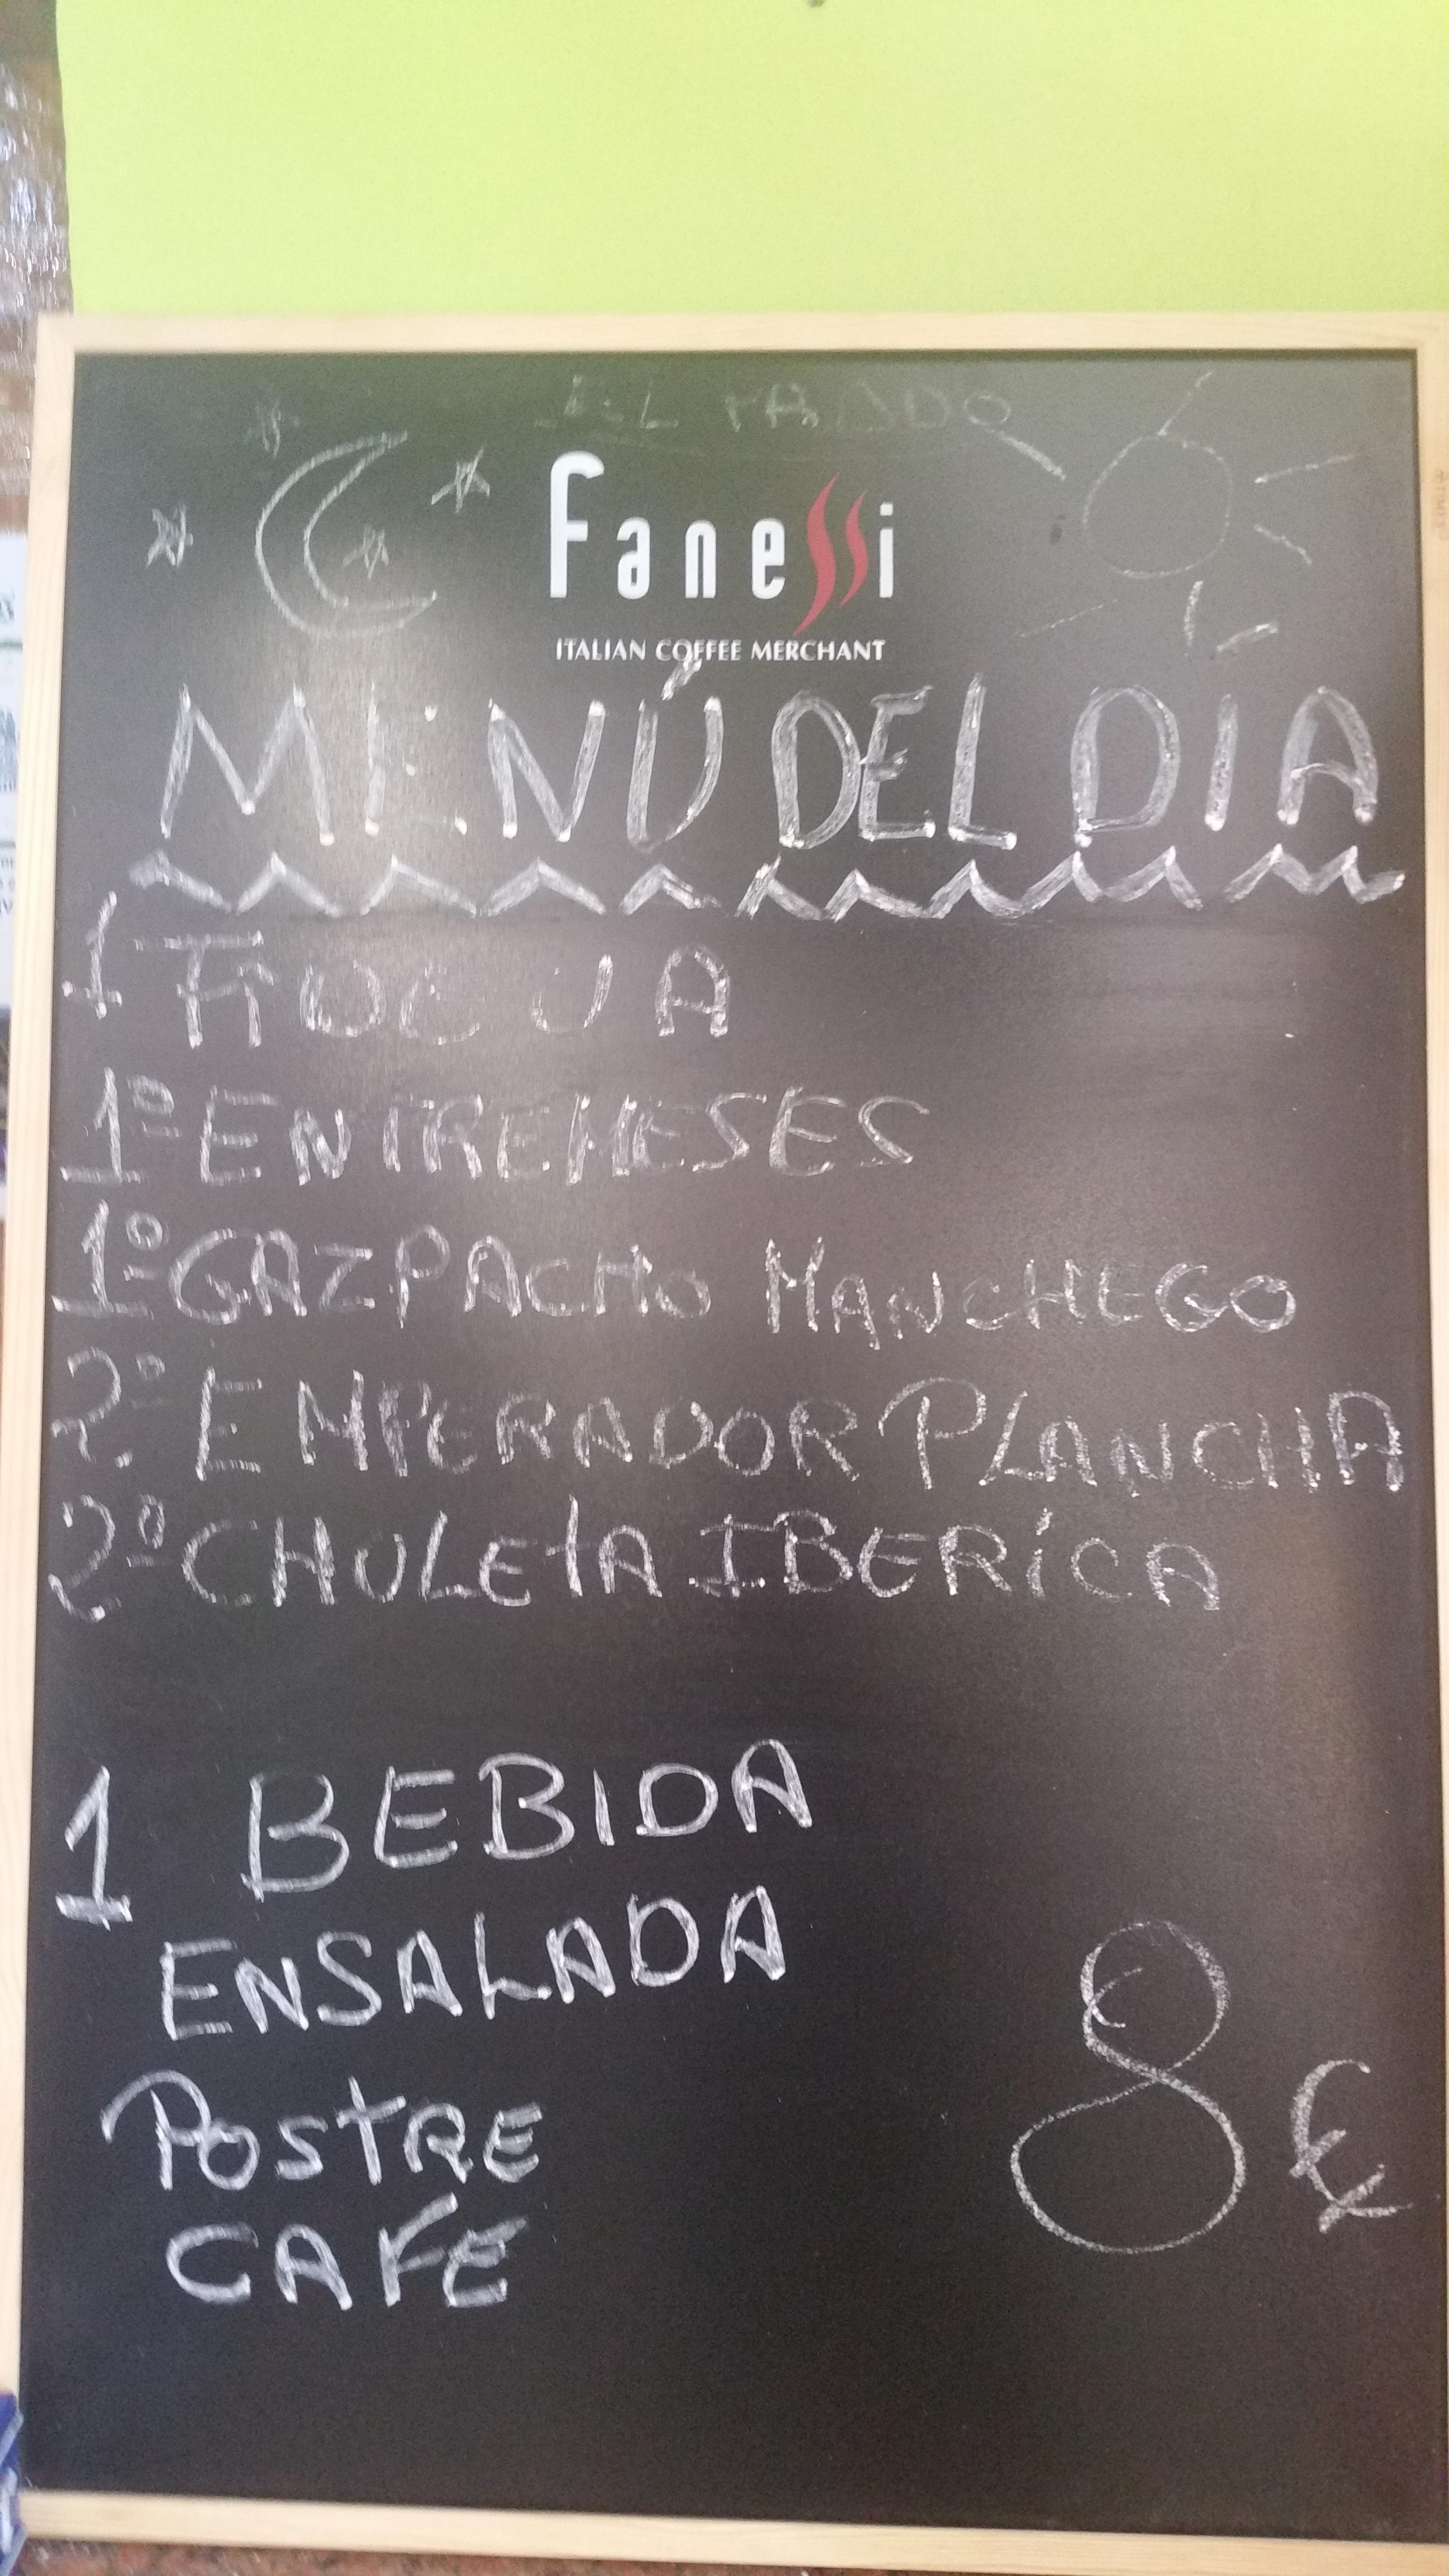 EL PRADO
Fanessi
ITALIAN COFFEE MERCHANT
MENÚ DEL DIA
1 FIDEUA
1º ENTREMESES
1º GAZPACHO MANCHEGO
2º EMPERADOR PLANCHA
2º CHULETA IBERíCA
1 BEBIDA
ENSALADA
POSTRE
CAFE
8 €